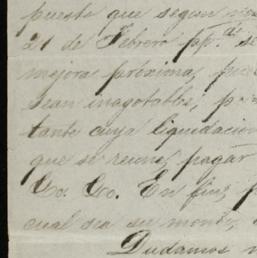 puesto que segun
21 de Febrero pp.do se
mejora próxima, pue
sean inagotables, p
tante cuya liquidacion
que se reune, pagar
&a. &a. En fin,
cual sea su monto,
Dudamos